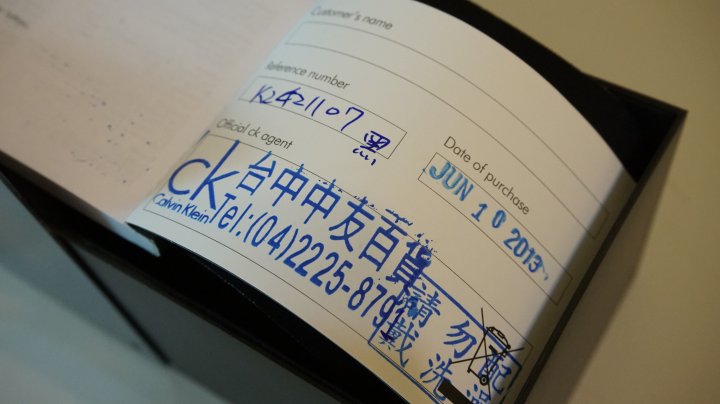 Customer's name
Reference number
K2421107 黑
Date of purchase
JUN 10 2013
Official ck agent
ck 台中中友百貨
Calvin Klein Tel:(04)2225-879
請勿配
戴洗